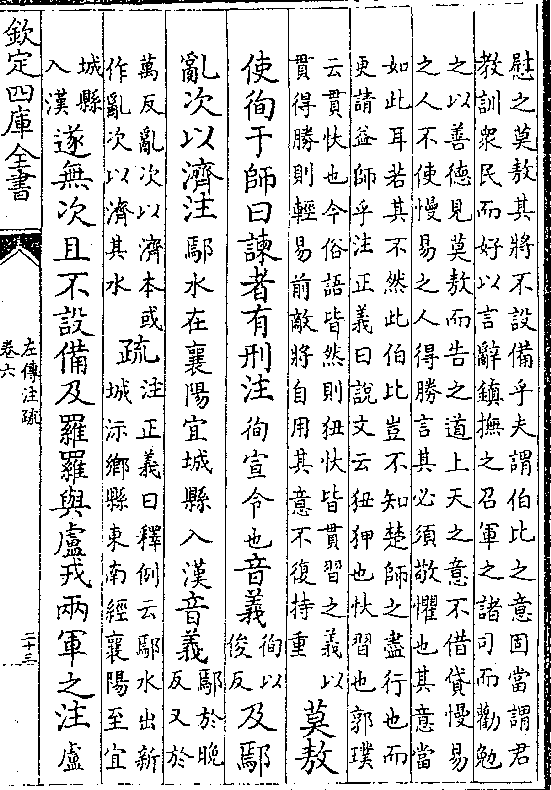 慰之莫敖其將不設備乎夫謂伯比之意固當謂君
教訓衆民而好以言辭鎮撫之召軍之諸司而勸勉
之以善德見莫敖而告之道上天之意不借貸慢易
之人不使慢易之人得勝言其必須敬懼也其意當
如此耳若其不然此伯比豈不知楚師之盡行也而
更請益師乎注正義曰說文云狃狎也忕習也郭璞
云貫忕也今俗語皆然則狃忕皆貫習之義以
貫得勝則輕易前敵將自用其意不復持重
莫敖
使徇于師曰諫者有刑注徇宣令也音義
徇以
俊反
及鄢
亂次以濟注鄢水在襄陽宜城縣入漢音義
鄢於晚
反又於
萬反亂次以濟本或
作亂次以濟其水
疏
注正義曰釋例云鄢水出新
城沶鄉縣東南經襄陽至宜
城縣
入漢
遂無次且不設備及羅羅與盧戎兩軍之注盧
欽定四庫全書
左傳注疏
卷六
二十三